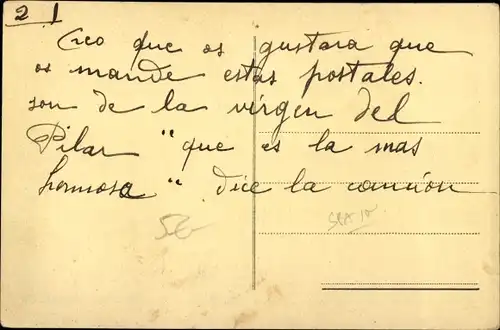 2 1
Creo que os gustara que
os mande estas postales.
son de la virgen del
Pilar "que es la mas
hermosa" dice la canción